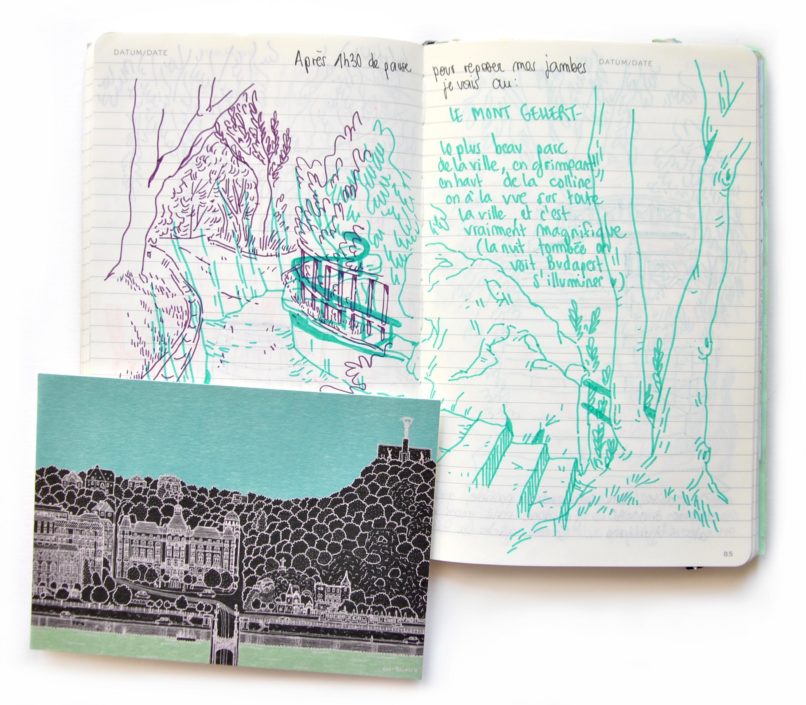 DATUM/DATE
Après 1h30 de pause
pour reposer mes jambes
DATUM/DATE
je vais au:
LE MONT GELLERT-
le plus beau parc
de la ville, en grimpant
en haut de la colline
on à la vue sur toute
la ville, et c'est
vraiment magnifique
(la nuit tombée on
voit Budapest
s'illuminer!)
85